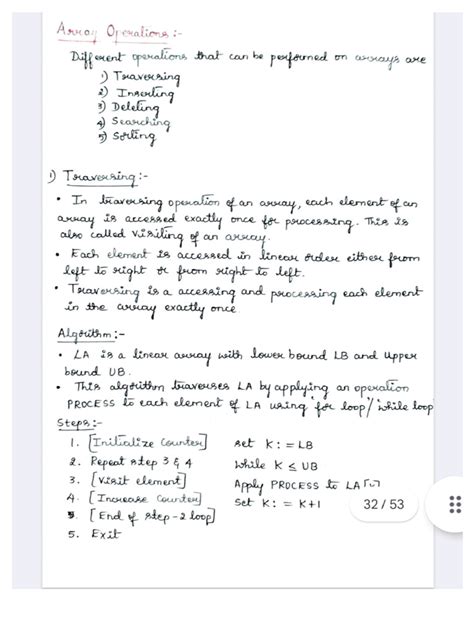 Array Operations :-
Different operations that can be performed on arrays are
1) Traversing
2) Inserting
3) Deleting
4) Searching
5) Sorting
1) Traversing :-
• In traversing operation of an array, each element of an
array is accessed exactly once for processing. This is
also called visiting of an array.
• Each element is accessed in linear order either from
left to right or from right to left.
• Traversing is a accessing and processing each element
in the array exactly once.
Algorithm :-
• LA is a linear array with lower bound LB and upper
bound UB.
• This algorithm traverses LA by applying an operation
PROCESS to each element of LA using 'for loop/while loop
Steps :-
1. [Initialize Counter] set K: = LB
2. Repeat step 3 & 4 while K ≤ UB
3. [Visit element] Apply PROCESS to LA
4. [Increase Counter] set K: = K+1
5. [End of step-2 loop]
5. Exit
32 / 53